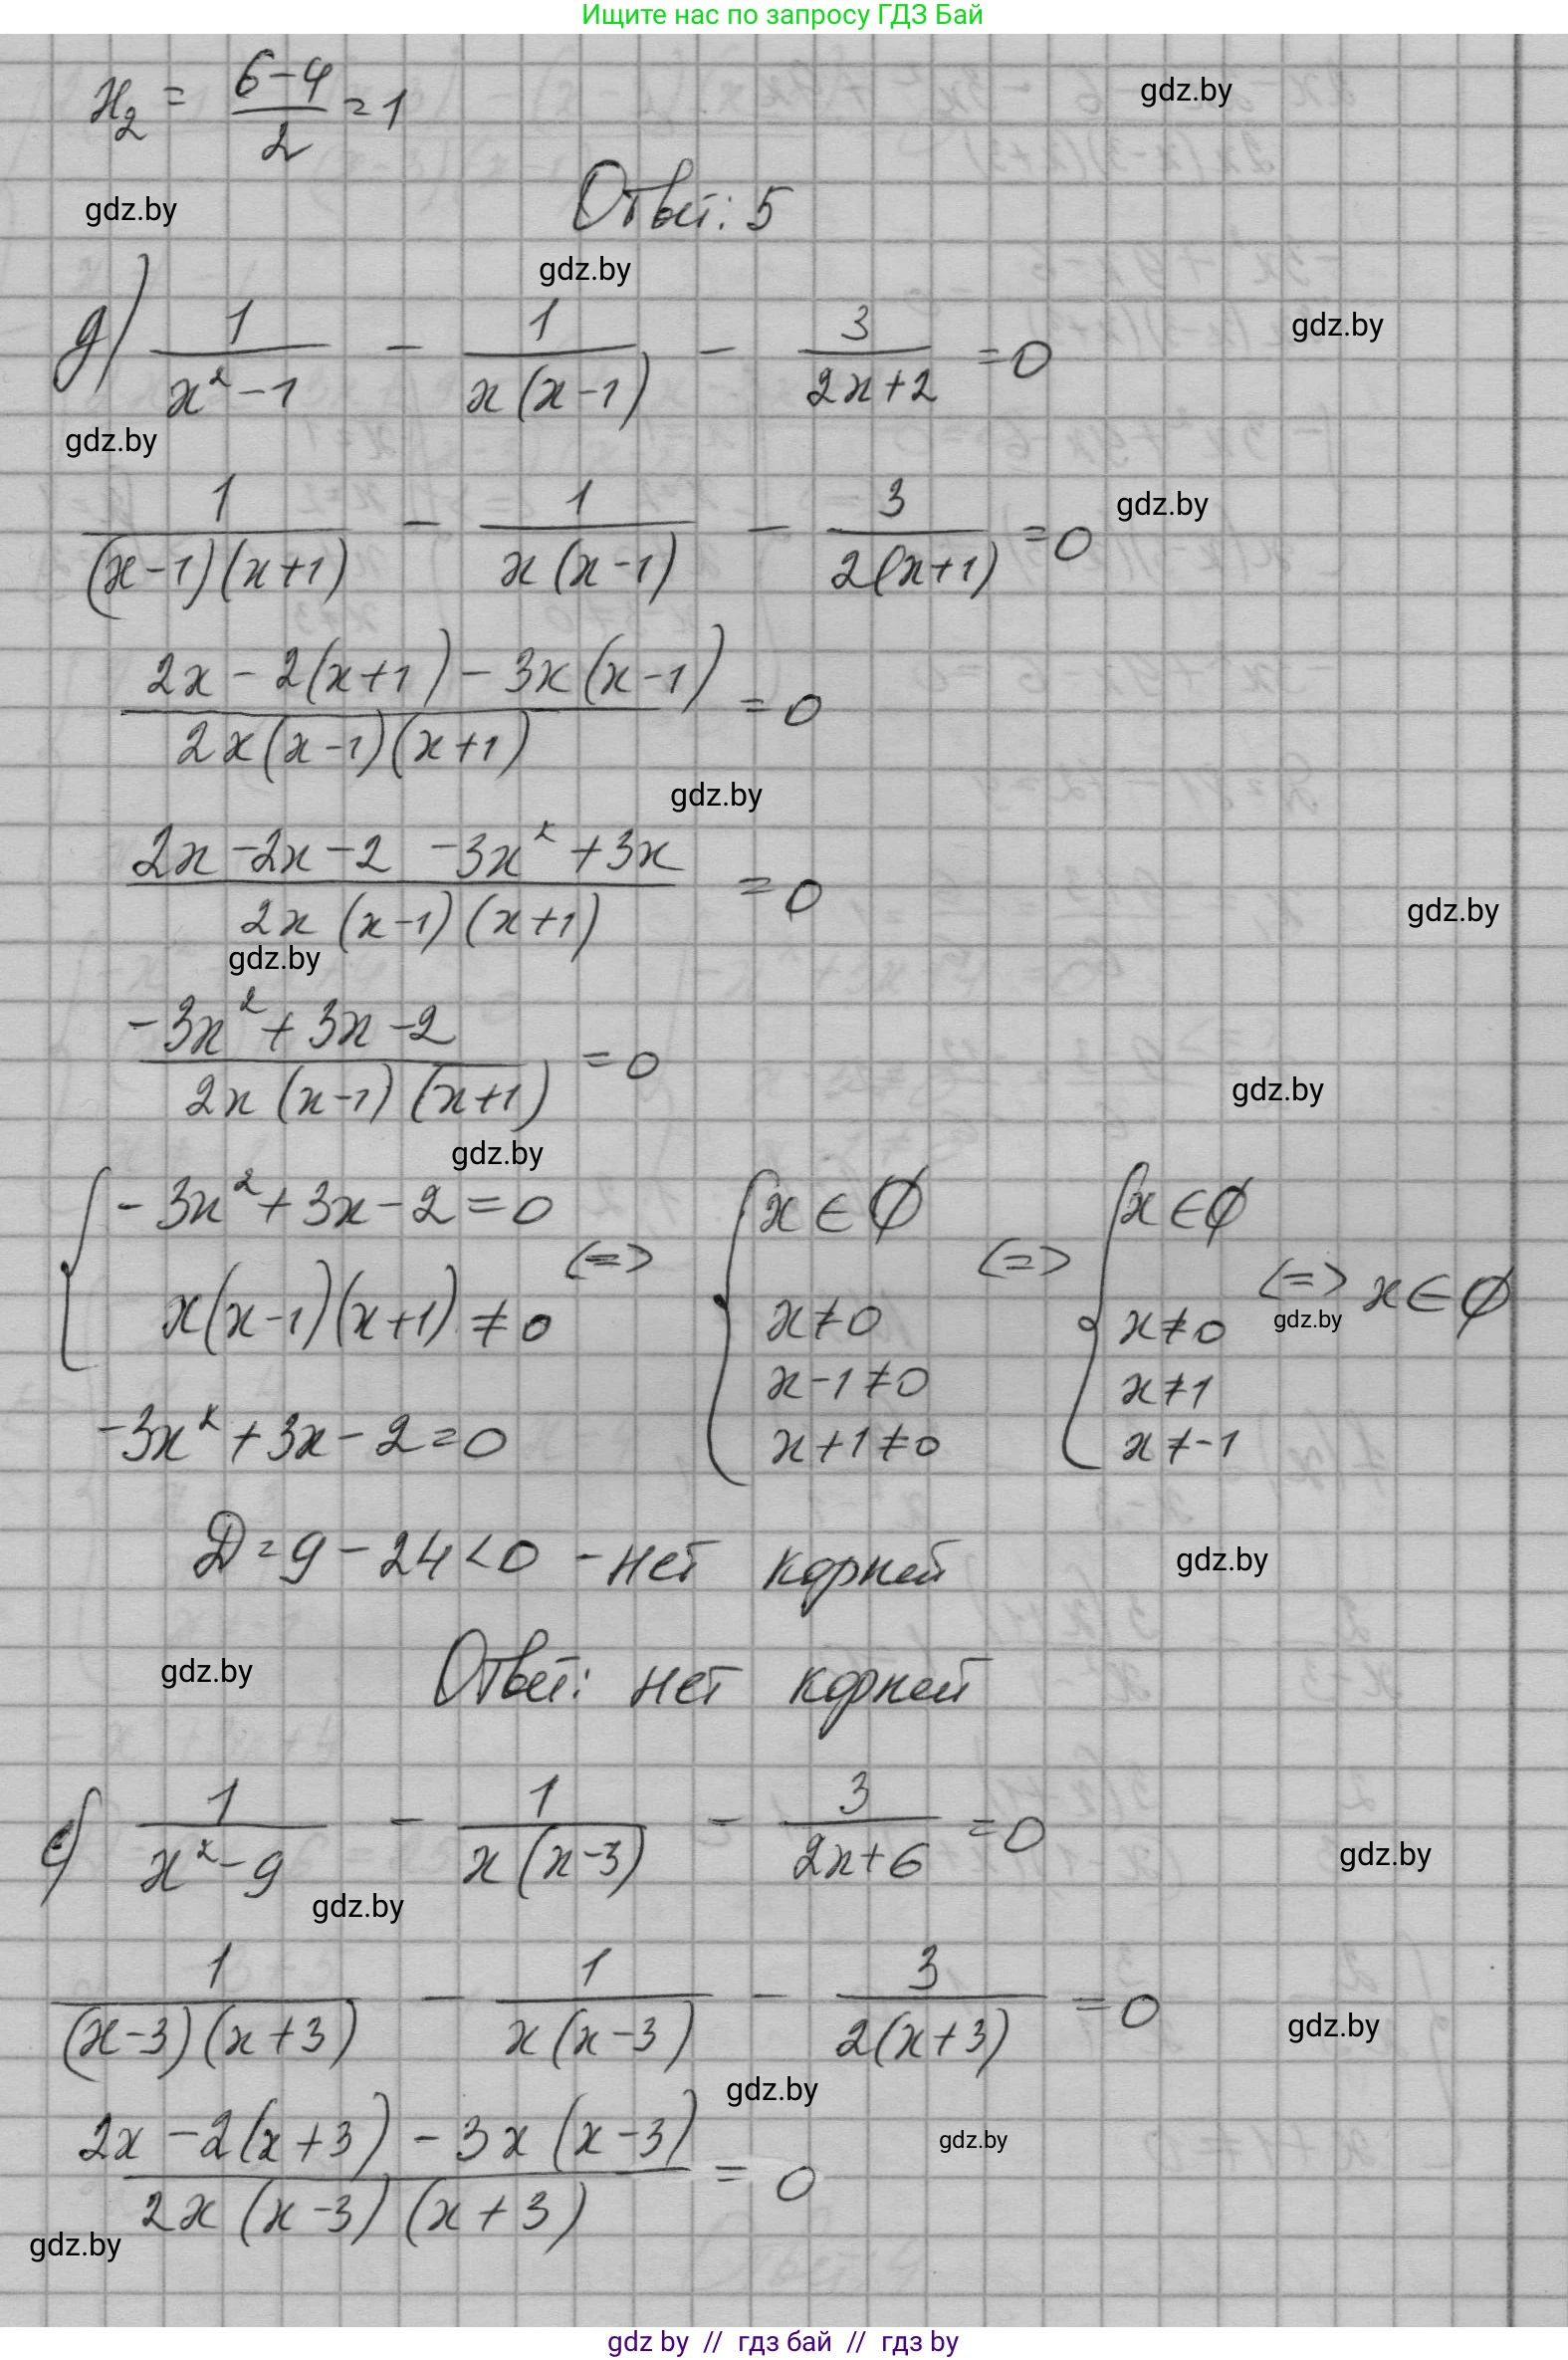 Ищите нас по запросу ГДЗ Бай
x₂ = (6-4)/2 = 1
gdz.by
gdz.by
Ответ: 5
gdz.by
д) 1/(x²-1) - 1/(x(x-1)) - 3/(2x+2) = 0
gdz.by
gdz.by
1/((x-1)(x+1)) - 1/(x(x-1)) - 3/(2(x+1)) = 0
gdz.by
(2x - 2(x+1) - 3x(x-1))/(2x(x-1)(x+1)) = 0
gdz.by
(2x - 2x - 2 - 3x² + 3x)/(2x(x-1)(x+1)) = 0
gdz.by
gdz.by
(-3x² + 3x - 2)/(2x(x-1)(x+1)) = 0
gdz.by
gdz.by
{ -3x² + 3x - 2 = 0
x(x-1)(x+1) ≠ 0
<=>
{ x ∈ ∅
x ≠ 0
x-1 ≠ 0
x+1 ≠ 0
<=>
{ x ∈ ∅
x ≠ 0
x ≠ 1
x ≠ -1
<=> x ∈ ∅
gdz.by
-3x² + 3x - 2 = 0
D = 9 - 24 < 0 - нет корней
gdz.by
gdz.by
Ответ: нет корней
е) 1/(x²-9) - 1/(x(x-3)) - 3/(2x+6) = 0
gdz.by
gdz.by
1/((x-3)(x+3)) - 1/(x(x-3)) - 3/(2(x+3)) = 0
gdz.by
gdz.by
(2x - 2(x+3) - 3x(x-3))/(2x(x-3)(x+3)) = 0
gdz.by
gdz.by
gdz by // гдз бай // гдз by